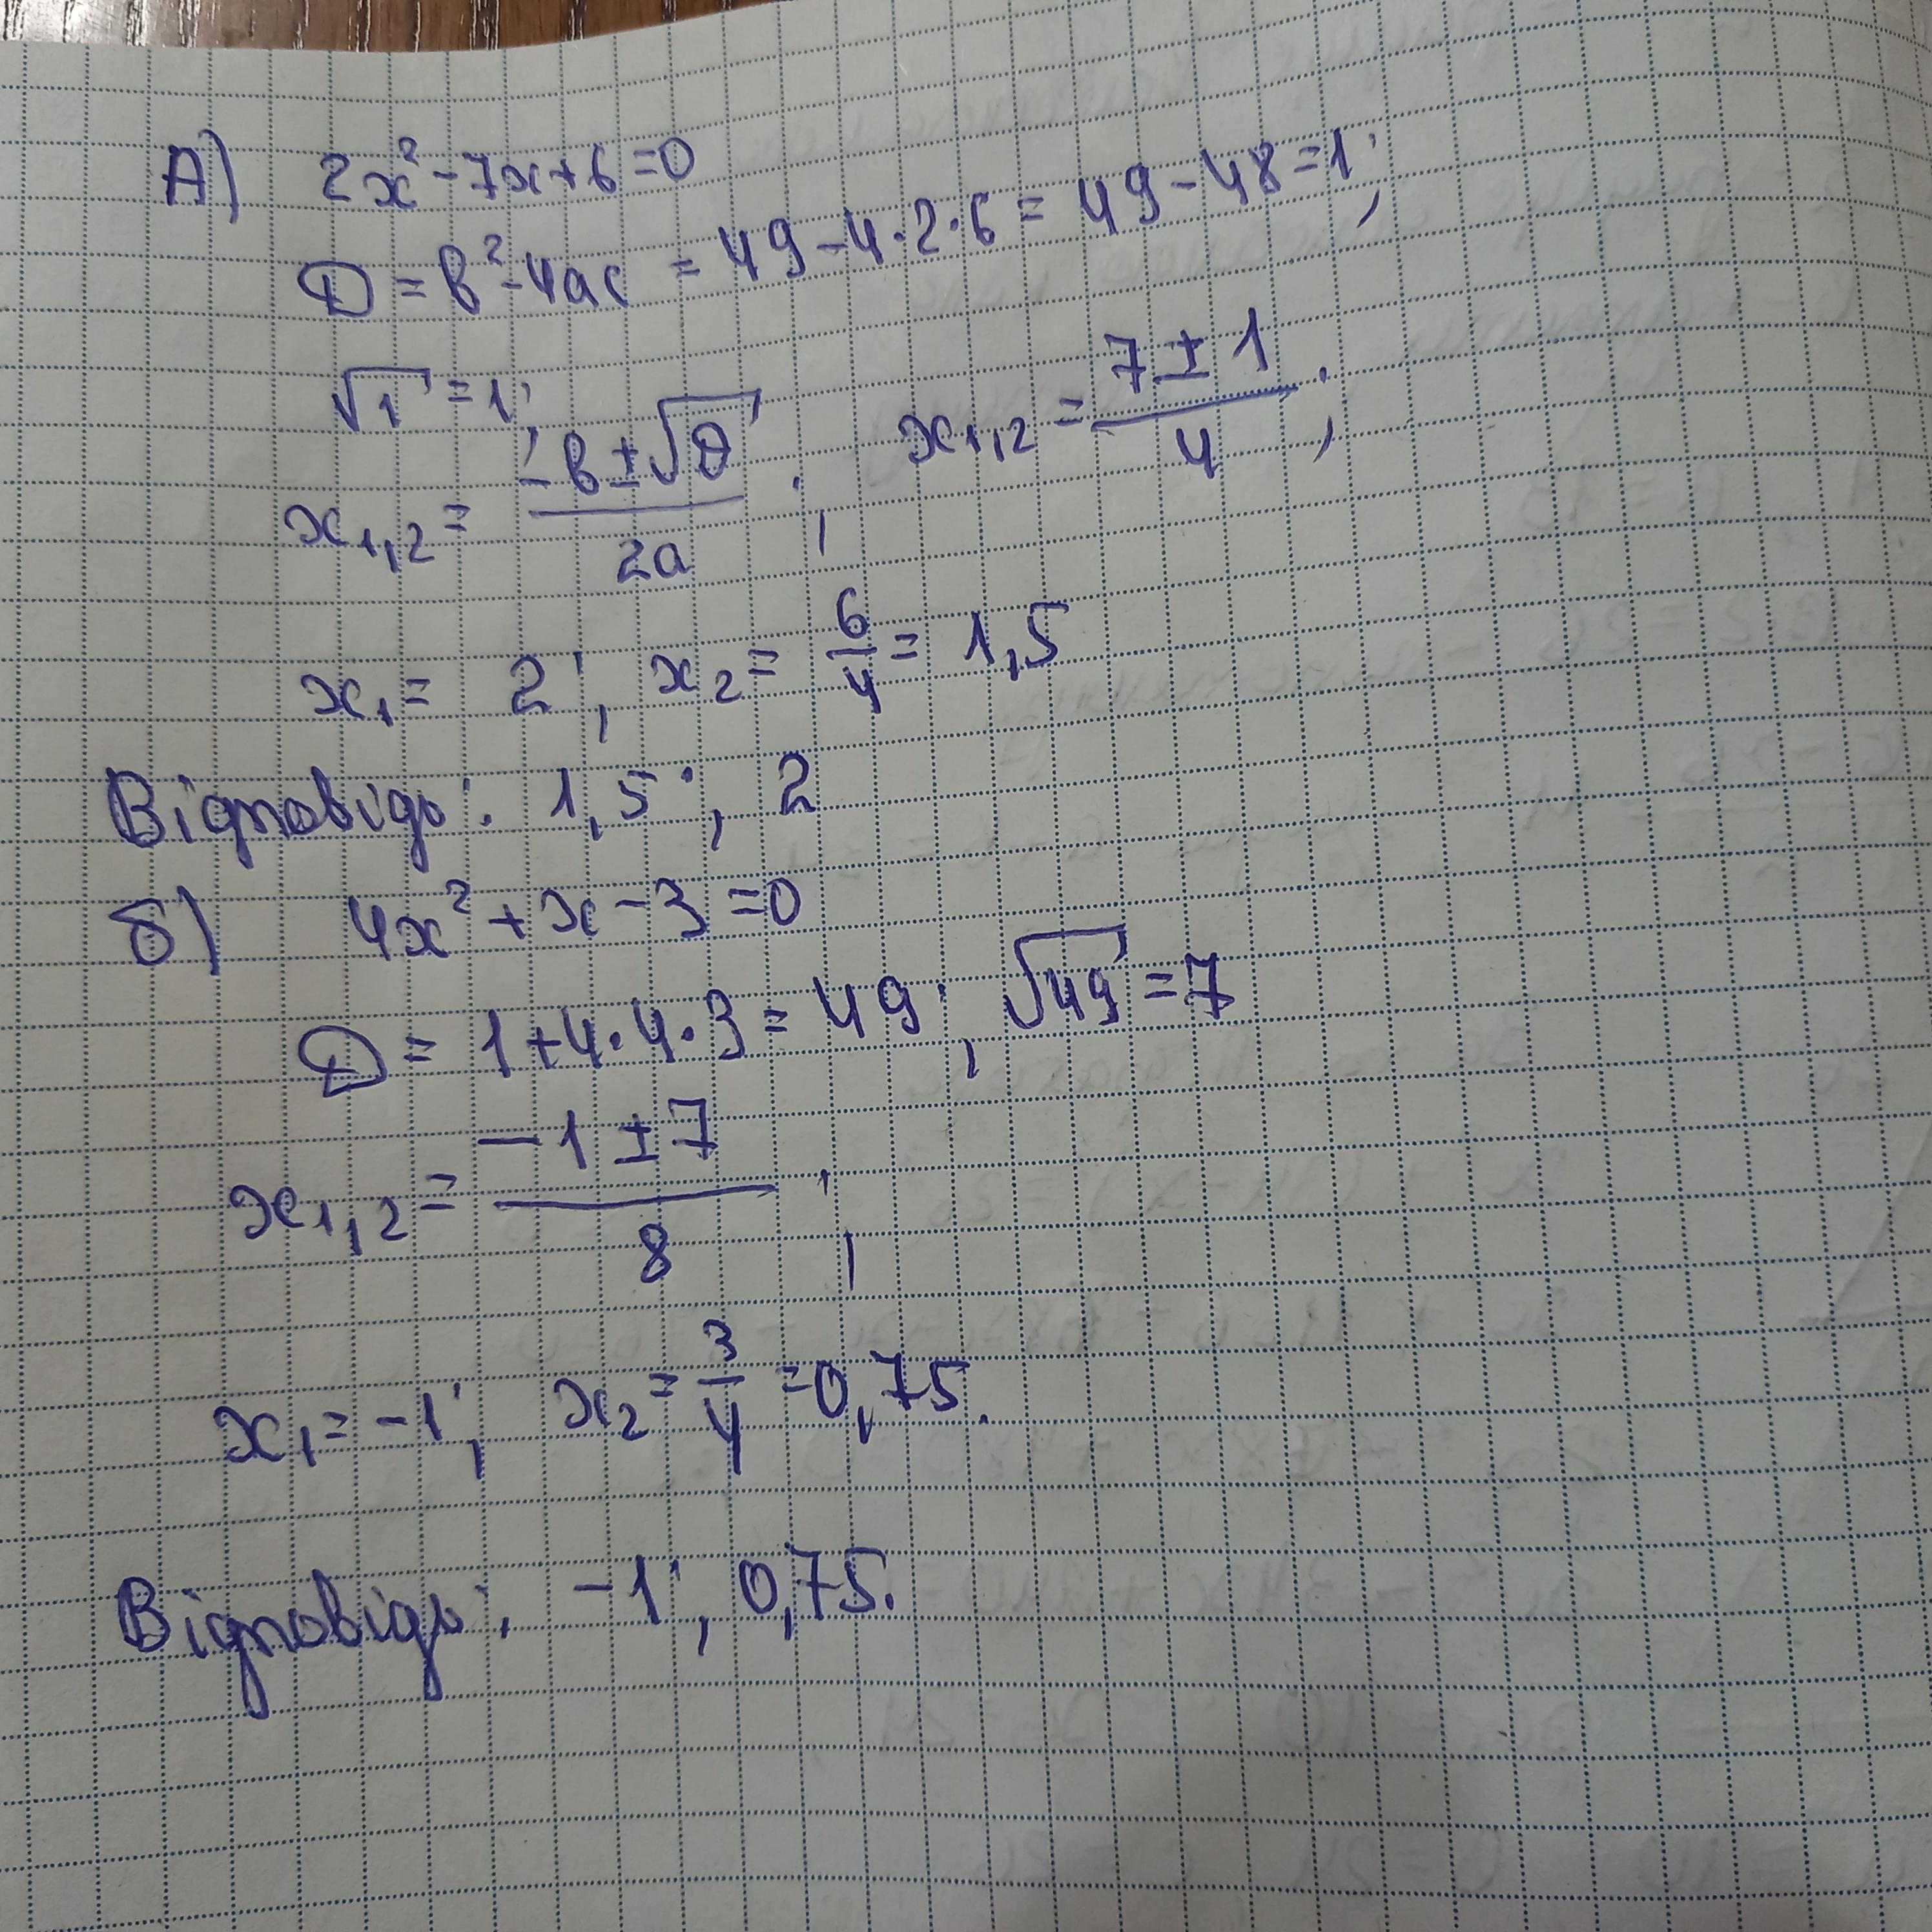 А) 2x² - 7x + 6 = 0
D = b² - 4ac = 49 - 4·2·6 = 49 - 48 = 1;
√1 = 1;
x₁,₂ = (-b ± √D) / 2a ; x₁,₂ = (7 ± 1) / 4 ;
x₁ = 2; x₂ = 6/4 = 1,5
Відповідь: 1,5; 2
б) 4x² + x - 3 = 0
D = 1 + 4·4·3 = 49; √49 = 7
x₁,₂ = (-1 ± 7) / 8 ;
x₁ = -1; x₂ = 3/4 = 0,75.
Відповідь: -1; 0,75.